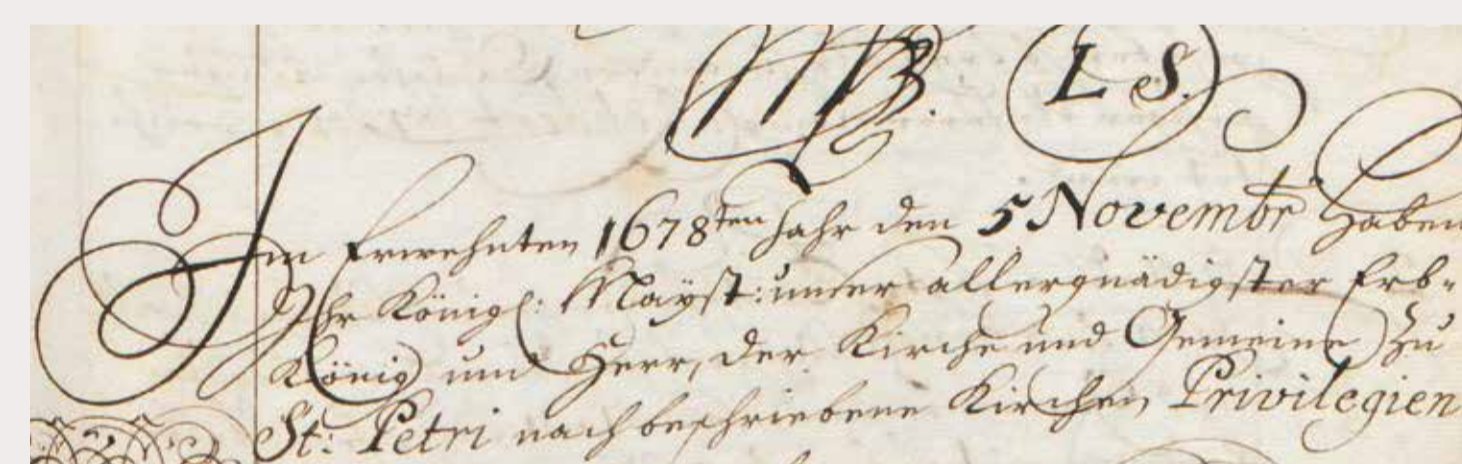 L. S.
Im Erwehnten 1678ten Jahr den 5 Novembr Haben
Ihr Königl: Maÿst: unser allergnädigster Erb-
König und Herr, der Kirche und Gemeine zu
St: Petri nachbeschriebene Kirchen Privilegien